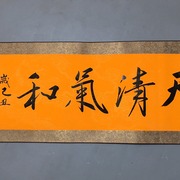 天清氣和
歲己丑